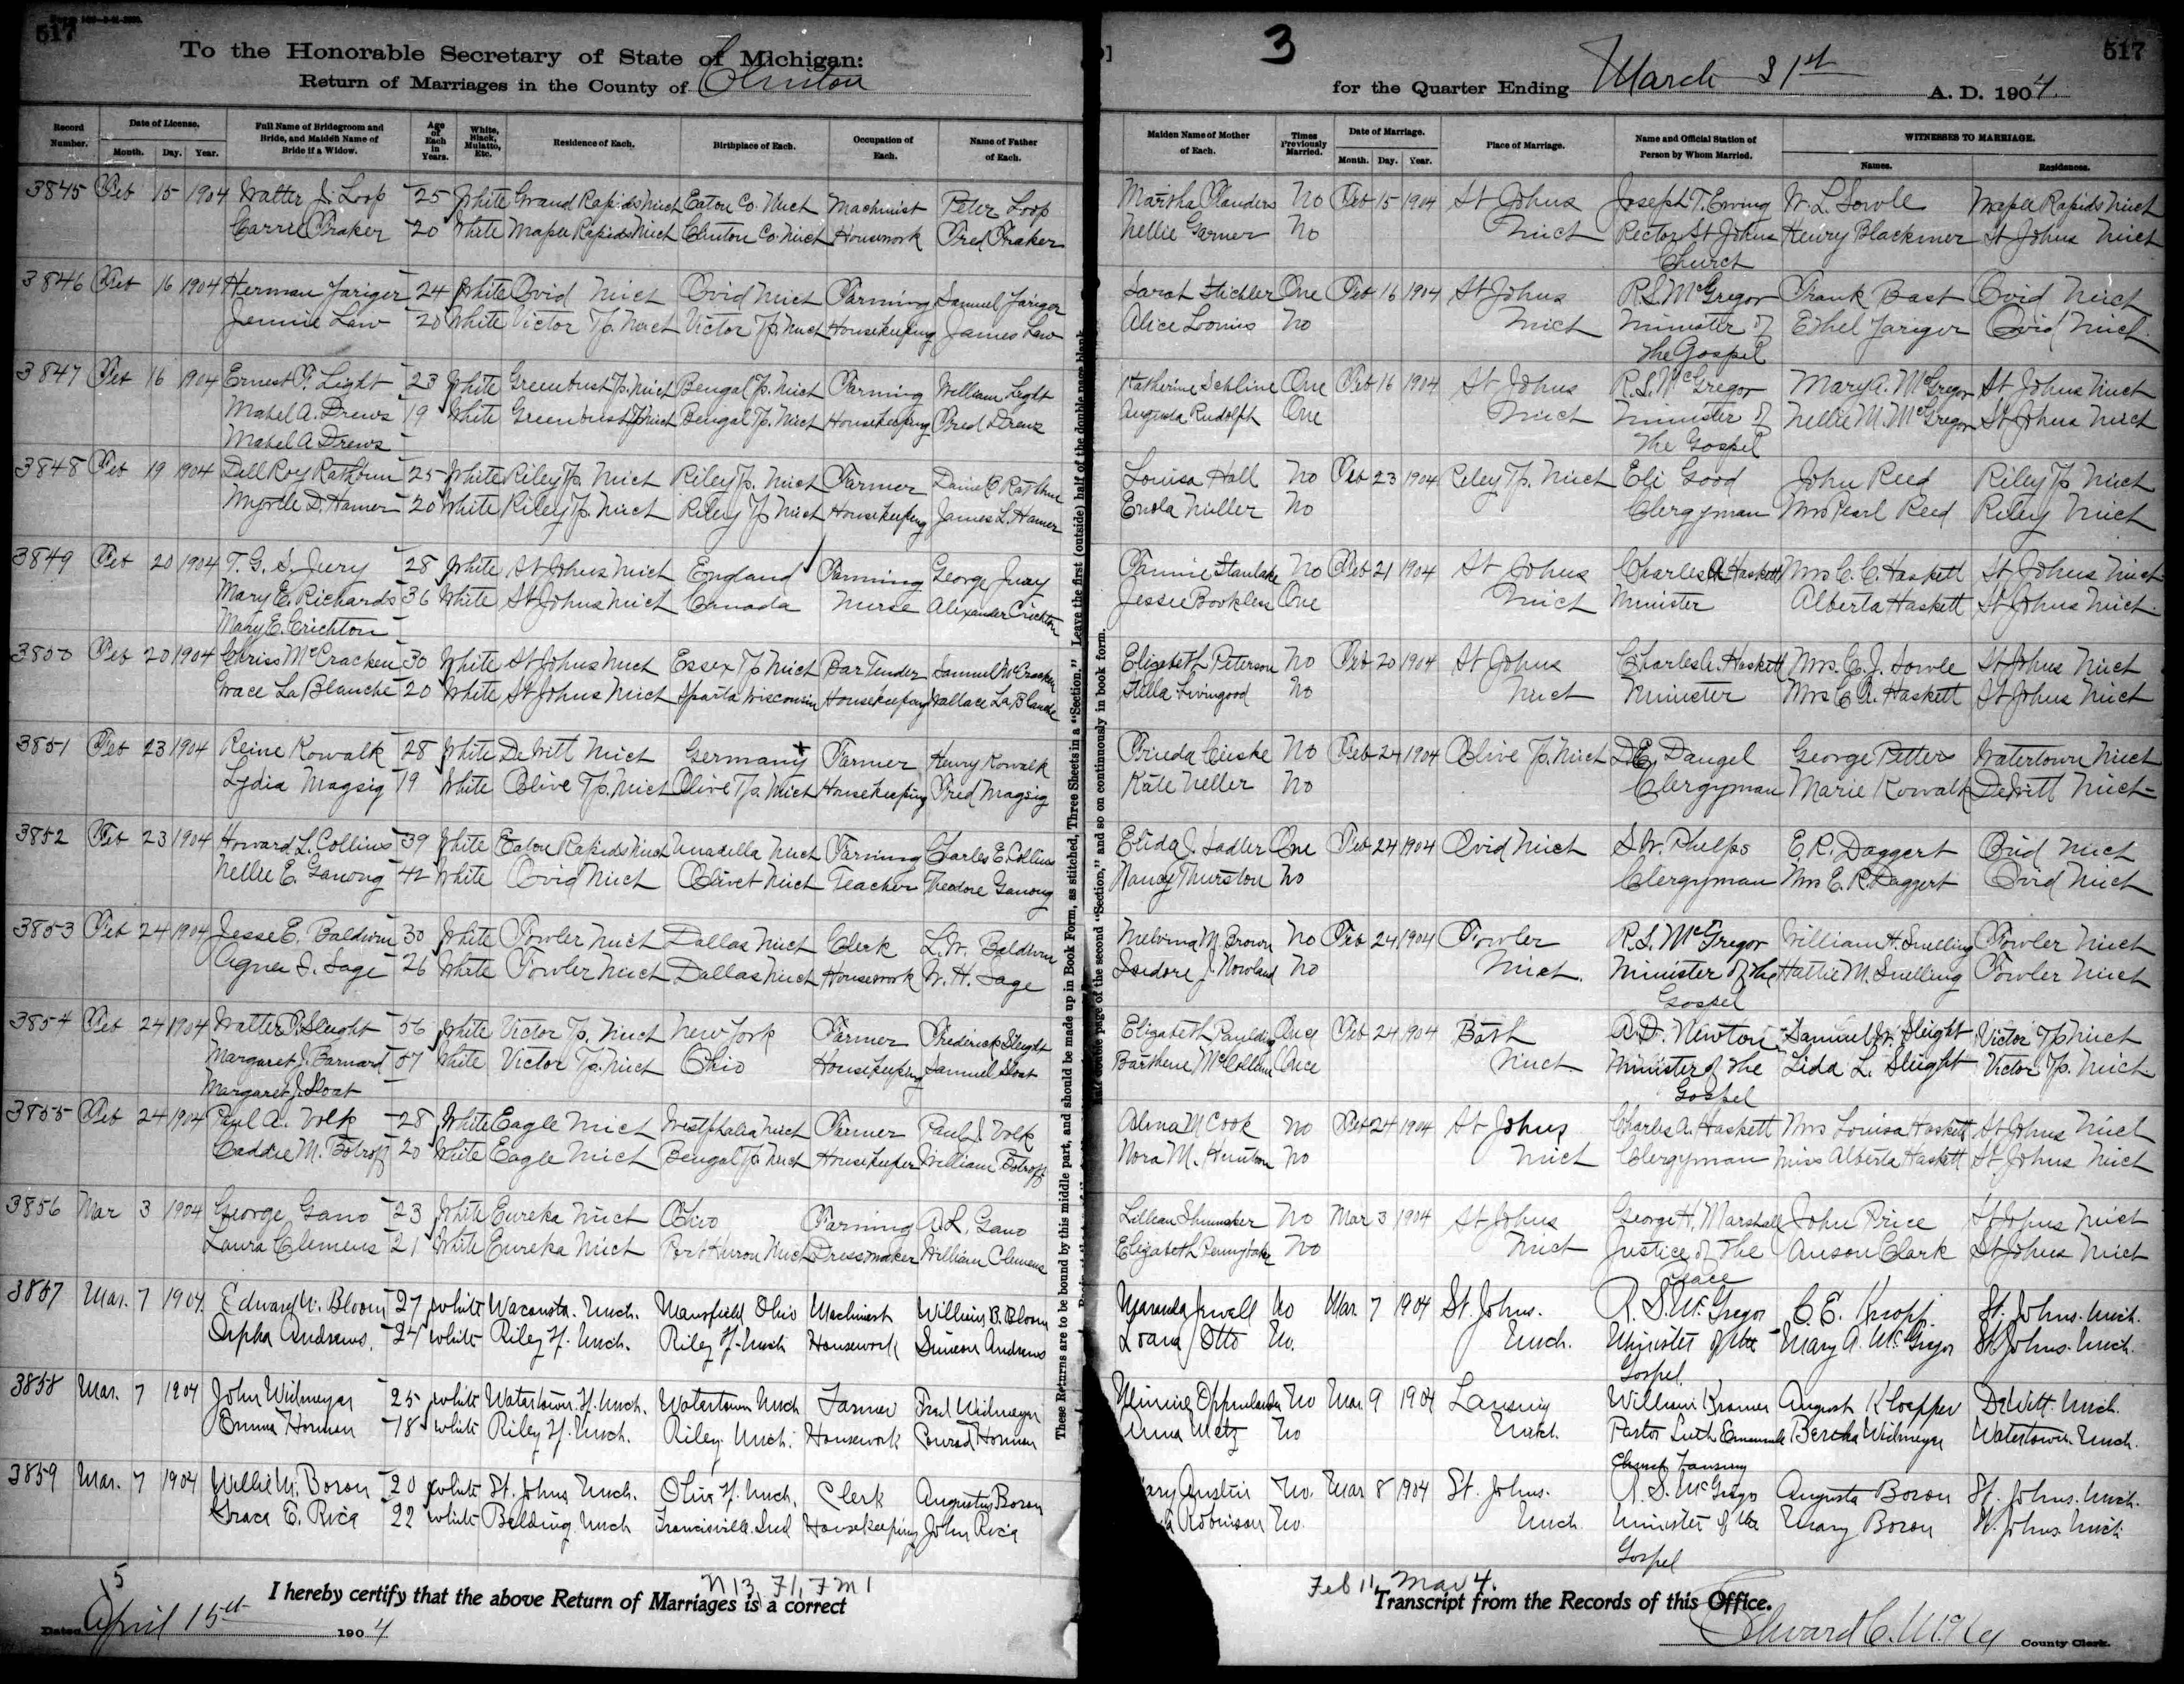 517
To the Honorable Secretary of State of Michigan:
Return of Marriages in the County of Clinton
Record Number.
Date of License.
Month. Day. Year.
Full Name of Bridegroom and Bride, and Maiden Name of Bride if a Widow.
Age of Each in Years.
White, Black, Mulatto, Etc.
Residence of Each.
Birthplace of Each.
Occupation of Each.
Name of Father of Each.
3845 Feb 15 1904 Walter J. Loop 25 White Grand Rapids Mich Eaton Co. Mich Machinist Peter Loop
Carrie Fraker 20 White Maple Rapids Mich Clinton Co. Mich Housework Fred Fraker
3846 Feb 16 1904 Herman Jariger 24 White Ovid Mich Ovid Mich Farming Samuel Jariger
Jennie Law 20 White Victor Tp. Mich Victor Tp. Mich Housekeeping James Law
3847 Feb 16 1904 Ernest F. Light 23 White Greenbush Tp. Mich Bengal Tp. Mich Farming William Light
Mabel A. Drews 19 White Greenbush Tp Mich Bengal Tp. Mich Housekeeping Fred Drews
Mabel A Drews
3848 Feb 19 1904 Dell Roy Rathbun 25 White Riley Tp. Mich Riley Tp. Mich Farmer Rathbun
Myrtle D. Hamer 20 White Riley Tp. Mich Riley Tp Mich Housekeeping James L. Hamer
3849 Feb 20 1904 T. G. S. Jury 28 White St Johns Mich England Farming George Jury
Mary E. Richards 36 White St Johns Mich Canada Nurse Alexander Crichton
Mary E. Crichton
3850 Feb 20 1904 Chriss McCracken 30 White St Johns Mich Essex Tp Mich Bar Tender Samuel McCracken
Grace La Blanche 20 White St Johns Mich Sparta Wisconsin Housekeeping Wallace La Blanche
3851 Feb 23 1904 Reine Kowalk 28 White DeWitt Mich Germany Farmer Henry Kowalk
Lydia Magsig 19 White Olive Tp. Mich Olive Tp. Mich Housekeeping Fred Magsig
3852 Feb 23 1904 Howard L. Collins 39 White Eaton Rapids Mich Unadilla Mich Farming Charles E. Collins
Nellie E. Ganong 42 White Ovid Mich Olivet Mich Teacher Theodore Ganong
3853 Feb 24 1904 Jesse E. Baldwin 30 White Fowler Mich Dallas Mich Clerk L. W. Baldwin
Agnes I. Sage 26 White Fowler Mich Dallas Mich Housework W. H. Sage
3854 Feb 24 1904 Walter P. Sleight 56 White Victor Tp. Mich New York Farmer Frederick Sleight
Margaret J. Barnard 57 White Victor Tp. Mich Ohio Housekeeping Samuel Sloat
Margaret J. Sloat
3855 Feb 24 1904 Paul A. Volk 28 White Eagle Mich Westphalia Mich Farmer Paul J. Volk
Caddie M. Botroff 20 White Eagle Mich Bengal Tp. Mich Housekeeper William Botroff
3856 Mar 3 1904 George Gano 23 White Eureka Mich Ohio Farming A. L. Gano
Laura Clemens 21 White Eureka Mich Port Huron Mich Dressmaker William Clemens
3857 Mar. 7 1904 Edward W. Bloom 27 White Wacousta. Mich. Mansfield Ohio Machinist William B. Bloom
Orpha Andrews. 24 White Riley Tp. Mich. Riley Tp. Mich Housework Simeon Andrews
3858 Mar. 7 1904 John Widmeyer 25 White Watertown Tp. Mich. Watertown Mich Farmer Fred Widmeyer
Emma Horman 18 White Riley Tp. Mich. Riley Mich. Housework Conrad Horman
3859 Mar. 7 1904 Willie M. Boron 20 White St. Johns Mich. Olive Tp. Mich. Clerk Augustus Boron
Grace E. Rice 22 White Belding Mich Francisville Ind Housekeeping John Rice
N 13, F1, F M 1
I hereby certify that the above Return of Marriages is a correct
5
Dated April 15th 1904
These Returns are to be bound by this middle part, and should be made up in Book Form, as stitched, Three Sheets in a "Section." Leave the first (outside) half of the double page blank.
page of the second "Section," and so on continuously in book form.
3
517
for the Quarter Ending March 31st A. D. 1904.
Maiden Name of Mother of Each.
Times Previously Married.
Date of Marriage.
Month. Day. Year.
Place of Marriage.
Name and Official Station of Person by Whom Married.
WITNESSES TO MARRIAGE.
Names. Residences.
Martha Flanders No Feb 15 1904 St Johns Joseph T. Ewing W. L. Sowle Maple Rapids Mich
Nellie Garner No Mich Rector St Johns Henry Blackmer St Johns Mich
Church
Sarah Stichler One Feb 16 1904 St Johns R. S. McGregor Frank Bast Ovid Mich
Alice Loomis No Mich Minister of Ethel Jariger Ovid Mich.
the Gospel
Katherine Schline One Feb 16 1904 St Johns R. S. McGregor Mary A. McGregor St Johns Mich
Augusta Rudolph One Mich Minister of Nellie M. McGregor St Johns Mich
the Gospel
Louisa Hall No Feb 23 1904 Riley Tp. Mich Eli Good John Reed Riley Tp Mich
Enola Miller No Clergyman Mrs Pearl Reed Riley Mich
Fannie Stanlake No Feb 21 1904 St Johns Charles A Haskett Mrs C. C. Haskett St Johns Mich
Jessie One Mich Minister Alberta Haskett St Johns Mich.
Elizabeth Peterson No Feb 20 1904 St Johns Charles A. Haskett Mrs. C. J. Sowle St Johns Mich
Stella Livingood No Mich Minister Mrs C. A. Haskett St Johns Mich
Frieda No Feb 24 1904 Olive Tp. Mich D. E. Dangel George Petters Watertown Mich
Kate Neller No Clergyman Marie Kowalk DeWitt Mich
Elida J. Sadler One Feb 24 1904 Ovid Mich S. W. Phelps E. R. Daggert Ovid Mich
Nancy Thurston No Clergyman Mrs E. R. Daggert Ovid Mich
Melvina M. Brown No Feb 24 1904 Fowler R. S. McGregor William H. Snelling Fowler Mich
Isidore J. Nowland No Mich. Minister of the Hattie M. Snelling Fowler Mich
Gospel
Elizabeth Paulding Once Feb 24 1904 Bath A. D. Newton Samuel W. Sleight Victor Tp Mich
McCollum Once Mich. Minister of the Lida L. Sleight Victor Tp. Mich.
Gospel
Alma M Cook No Feb 24 1904 St Johns Charles A. Haskett Mrs Louisa Haskett St Johns Mich
Nora M. No Mich Clergyman Miss Alberta Haskett St Johns Mich
Lillian Shumaker No Mar 3 1904 St Johns George H. Marshall John Price St Johns Mich
Elizabeth Pennybaker No Mich Justice of the Anson Clark St Johns Mich
Peace
Maranda Jewell No Mar. 7 1904 St. Johns. R. S. McGregor C. E. Knopf. St. Johns. Mich.
Loana Otto No. Mich. Minister of the Mary A. McGregor St. Johns. Mich.
Gospel.
Minnie No Mar. 9 1904 Lansing William Kramer August Kloepper DeWitt. Mich.
Anna Metz No Mich. Pastor Luth Emanuels Bertha Widmeyer Watertown. Mich.
Church Lansing
Austin No. Mar 8 1904 St. Johns. R. S. McGregor Augusta Boron St. Johns. Mich.
Robinson No. Mich Minister of the Mary Boron St. Johns. Mich
Gospel
Feb 11, Mar 4.
Transcript from the Records of this Office.
County Clerk.